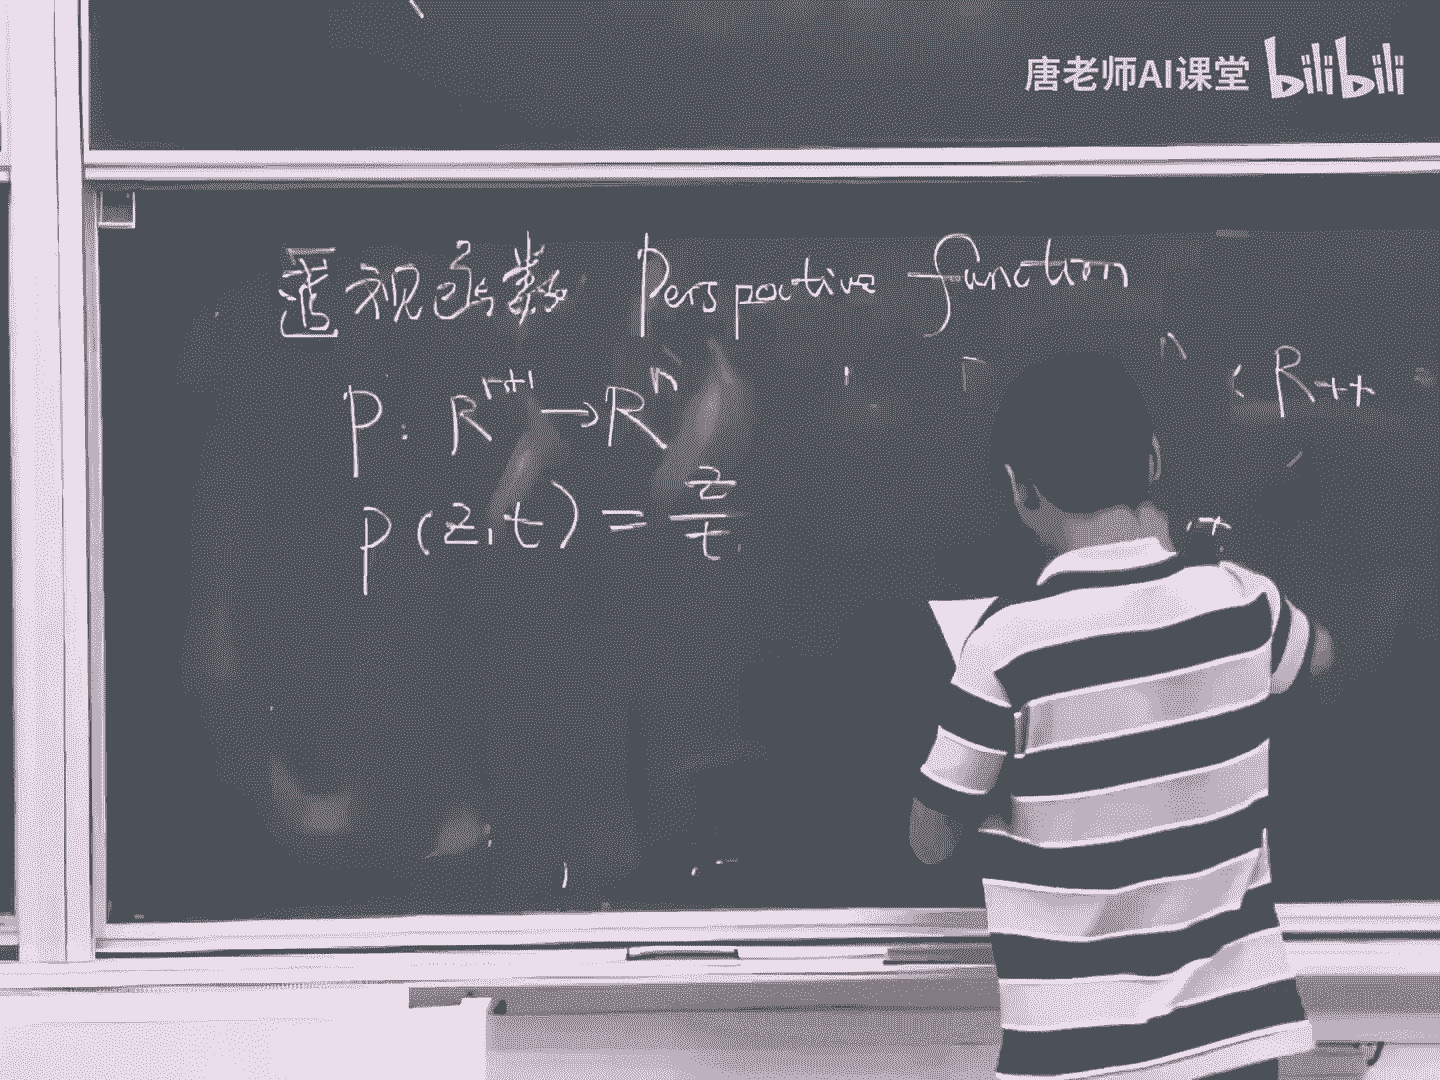 唐老师AI课堂 bilibili
透视函数 Perspective function
P: R^{n+1} → R^n R_{++}
P(z,t) = \frac{z}{t}